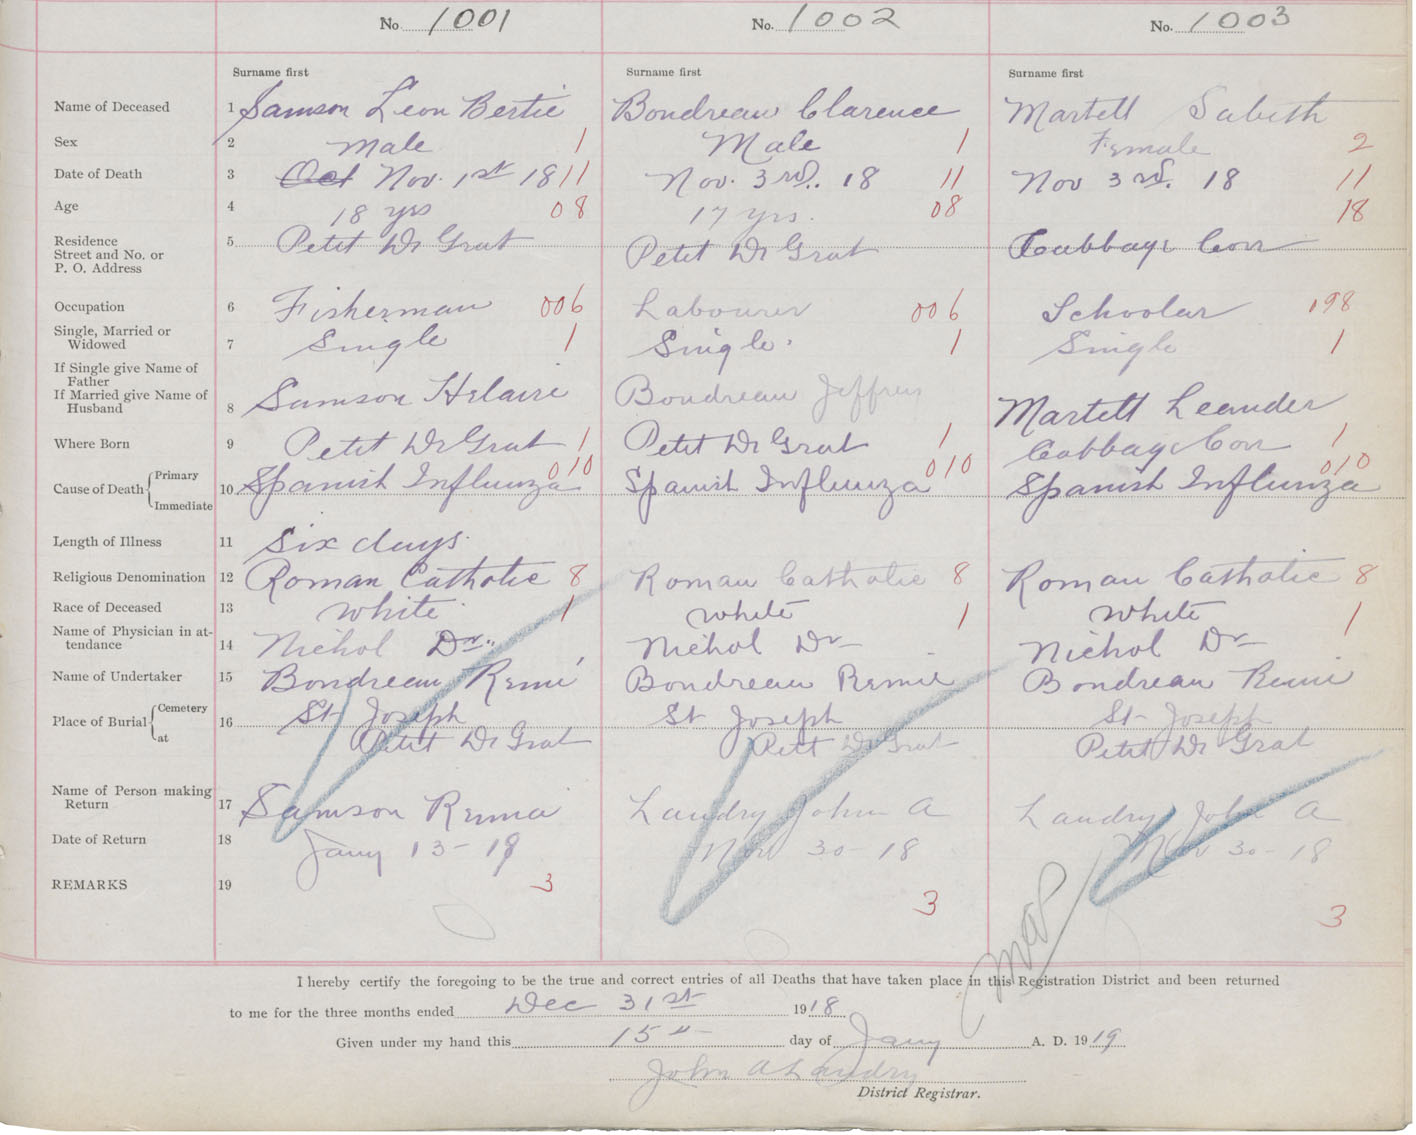 No. 1001 No. 1002 No. 1003
Surname first Surname first Surname first
Name of Deceased 1 Samson Leon Bertie Boudreau Clarence Martell Sabeth
Sex 2 Male 1 Male 1 Female 2
Date of Death 3 Oct Nov. 1st 18 11 Nov. 3rd. 18 11 Nov 3rd. 18 11
Age 4 18 yrs 08 17 yrs. 08 18
Residence
Street and No. or
P. O. Address 5 Petit De Grat Petit De Grat Cabbage Cove
Occupation 6 Fisherman 006 Labourer 006 Schoolar 198
Single, Married or
Widowed 7 Single 1 Single. 1 Single 1
If Single give Name of
Father
If Married give Name of
Husband 8 Samson Helaire Boudreau Jeffrey Martell Leander
Where Born 9 Petit De Grat 1 Petit De Grat 1 Cabbage Cove 1
Cause of Death Primary
Immediate 10 Spanish Influenza 010 Spanish Influenza 010 Spanish Influenza 010
Length of Illness 11 Six days.
Religious Denomination 12 Roman Catholic 8 Roman Catholic 8 Roman Catholic 8
Race of Deceased 13 White 1 White 1 White 1
Name of Physician in at-
tendance 14 Nichol Dr. Nichol Dr Nichol Dr
Name of Undertaker 15 Boudreau Remi Boudreau Remie Boudreau Remi
Place of Burial Cemetery 16 St Joseph St Joseph St Joseph
at Petit De Grat Petit De Grat Petit De Grat
Name of Person making
Return 17 Samson Landry John A Landry John A
Date of Return 18 Jany 13-19 Nov 30-18 Nov 30-18
REMARKS 19 3 3 3
I hereby certify the foregoing to be the true and correct entries of all Deaths that have taken place in this Registration District and been returned
to me for the three months ended Dec 31st 1918
Given under my hand this 15th day of Jany A. D. 1919
John A Landry
District Registrar.